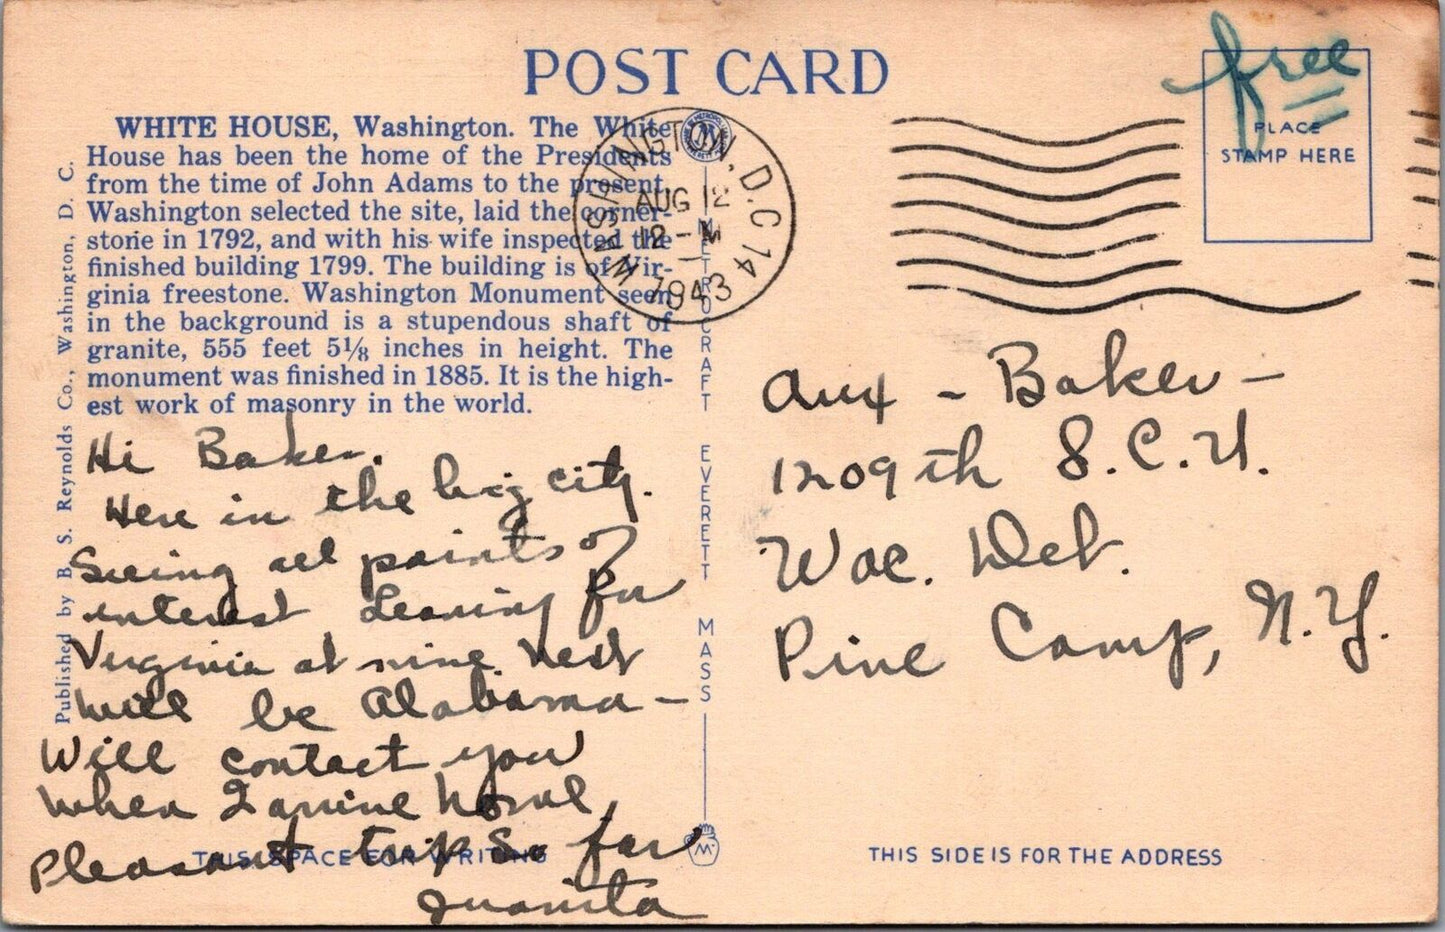 POST CARD
free
PLACE
STAMP HERE
WHITE HOUSE, Washington. The White
House has been the home of the Presidents
from the time of John Adams to the present.
Washington selected the site, laid the corner-
stone in 1792, and with his wife inspected the
finished building 1799. The building is of Vir-
ginia freestone. Washington Monument seen
in the background is a stupendous shaft of
granite, 555 feet 5⅛ inches in height. The
monument was finished in 1885. It is the high-
est work of masonry in the world.
WASHINGTON, D.C. 14
AUG 12
12 - M
1943
Published by B. S. Reynolds Co., Washington, D. C.
METROCRAFT EVERETT MASS
Hi Baker.
Here in the big city.
Seeing all points of
interest Leaving for
Virginia at nine. Next
will be Alabama -
Will contact you
when I arrive home,
Pleasant trip so far
Juanita
Aux - Baker -
1209th S.C.U.
Wac. Det.
Pine Camp, N.Y.
THIS SPACE FOR WRITING
THIS SIDE IS FOR THE ADDRESS